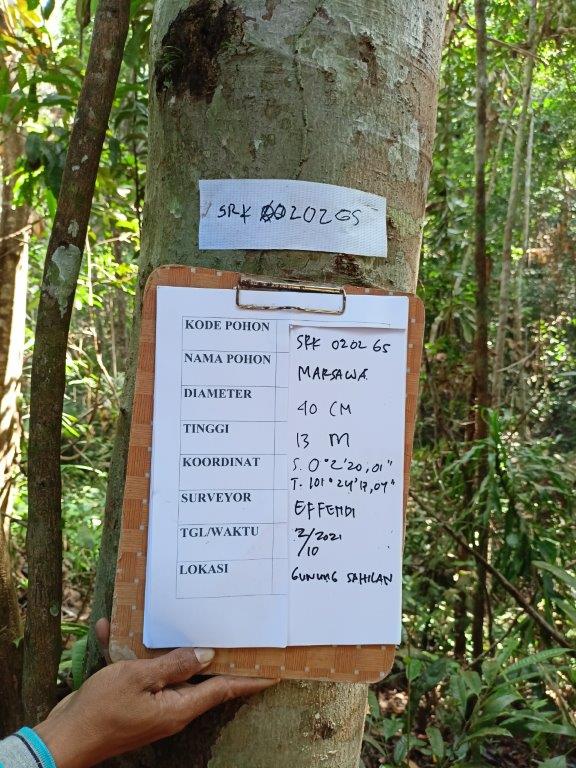 SRK 00202GS
KODE POHON SRK 0202 GS
NAMA POHON MARSAWA
DIAMETER 40 CM
TINGGI 13 M
KOORDINAT S. 0°2'20,01"
T. 101°24'17,07"
SURVEYOR EFFENDI
TGL/WAKTU 2/2021
/10
LOKASI GUNUNG SAHILAN